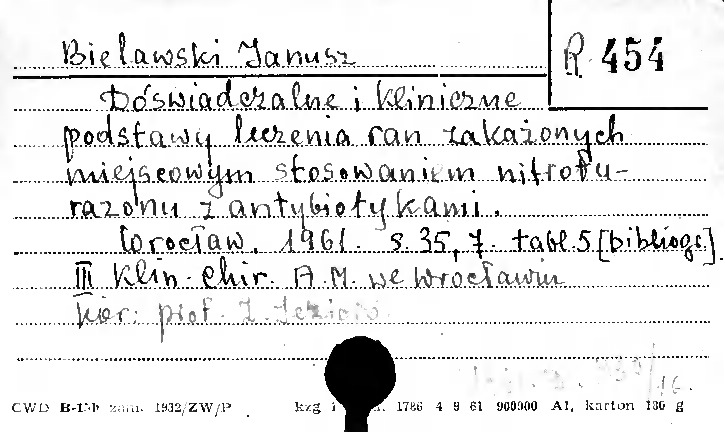 Bielawski Janusz
R 454
Doświadczalne i kliniczne
podstawy leczenia ran zakażonych
miejscowym stosowaniem nitrofu-
razonu z antybiotykami.
Wrocław, 1961. s. 35, 7. tabl. 5 [bibliogr.].
III Klin. Chir. A.M. we Wrocławiu
Kier: prof. Z. Jezioro
CWD B-1 b zam. 1932/ZW/P kzg 1786 4 9 61 900000 A1, karton 180 g